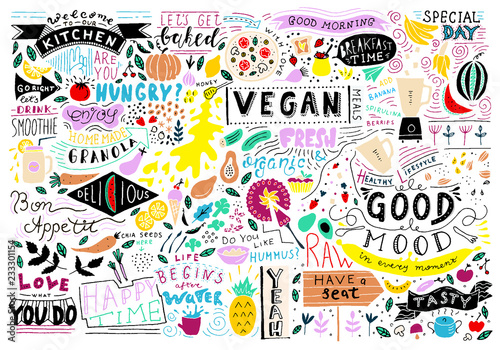 WELCOME
TO OUR
KITCHEN
LET'S GET
baked
WITH LOVE
GOOD MORNING
BREAKFAST
TIME
SPECIAL
DAY
ARE
YOU
HUNGRY?
HONEY
GO RIGHT
let's
DRINK
SMOOTHIE
enjoy
HOMEMADE
GRANOLA
VEGAN
MEALS
AND
BANANA
SPIRULINA
BERRIES
FRESH
&
organic
HEALTHY
LIFESTYLE
DELICIOUS
Bon
Appetit
CHIA SEEDS
HERB
GOOD
MOOD
in every moment
DO YOU
LIKE
HUMMUS?
LIFE
BEGINS
after
WATER
LOVE
WHAT
YOU DO
HAPPY
TIME
YEAH
RAW
HAVE A
seat
TASTY
Adobe Stock | #233301154